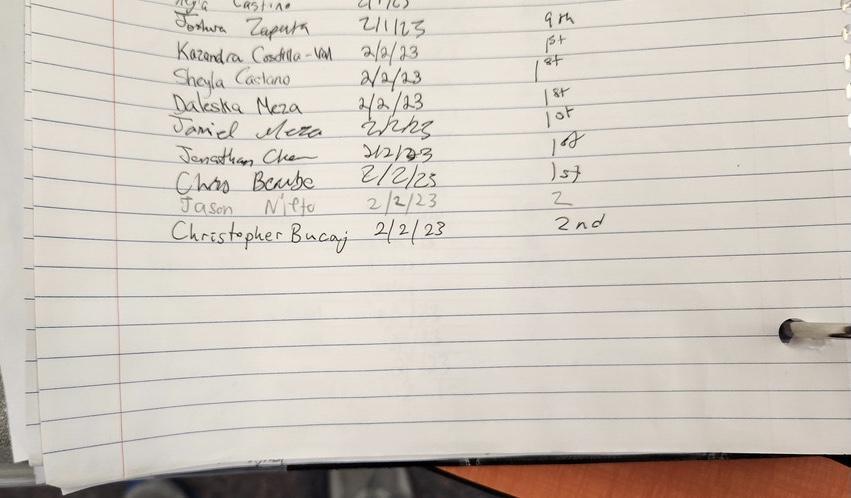 Castino 2/1/23
Joshua Zapata 2/1/23 9th
Kazandra Castilla-Val 2/2/23 1st
Sheyla Castano 2/2/23 1st
Daleska Meza 2/2/23 1st
Jamiel Meza 2/2/23 1st
Jonathan Chen 2/2/23 1st
Chris Berube 2/2/23 1st
Jason Nieto 2/2/23 2
Christopher Bucaj 2/2/23 2nd